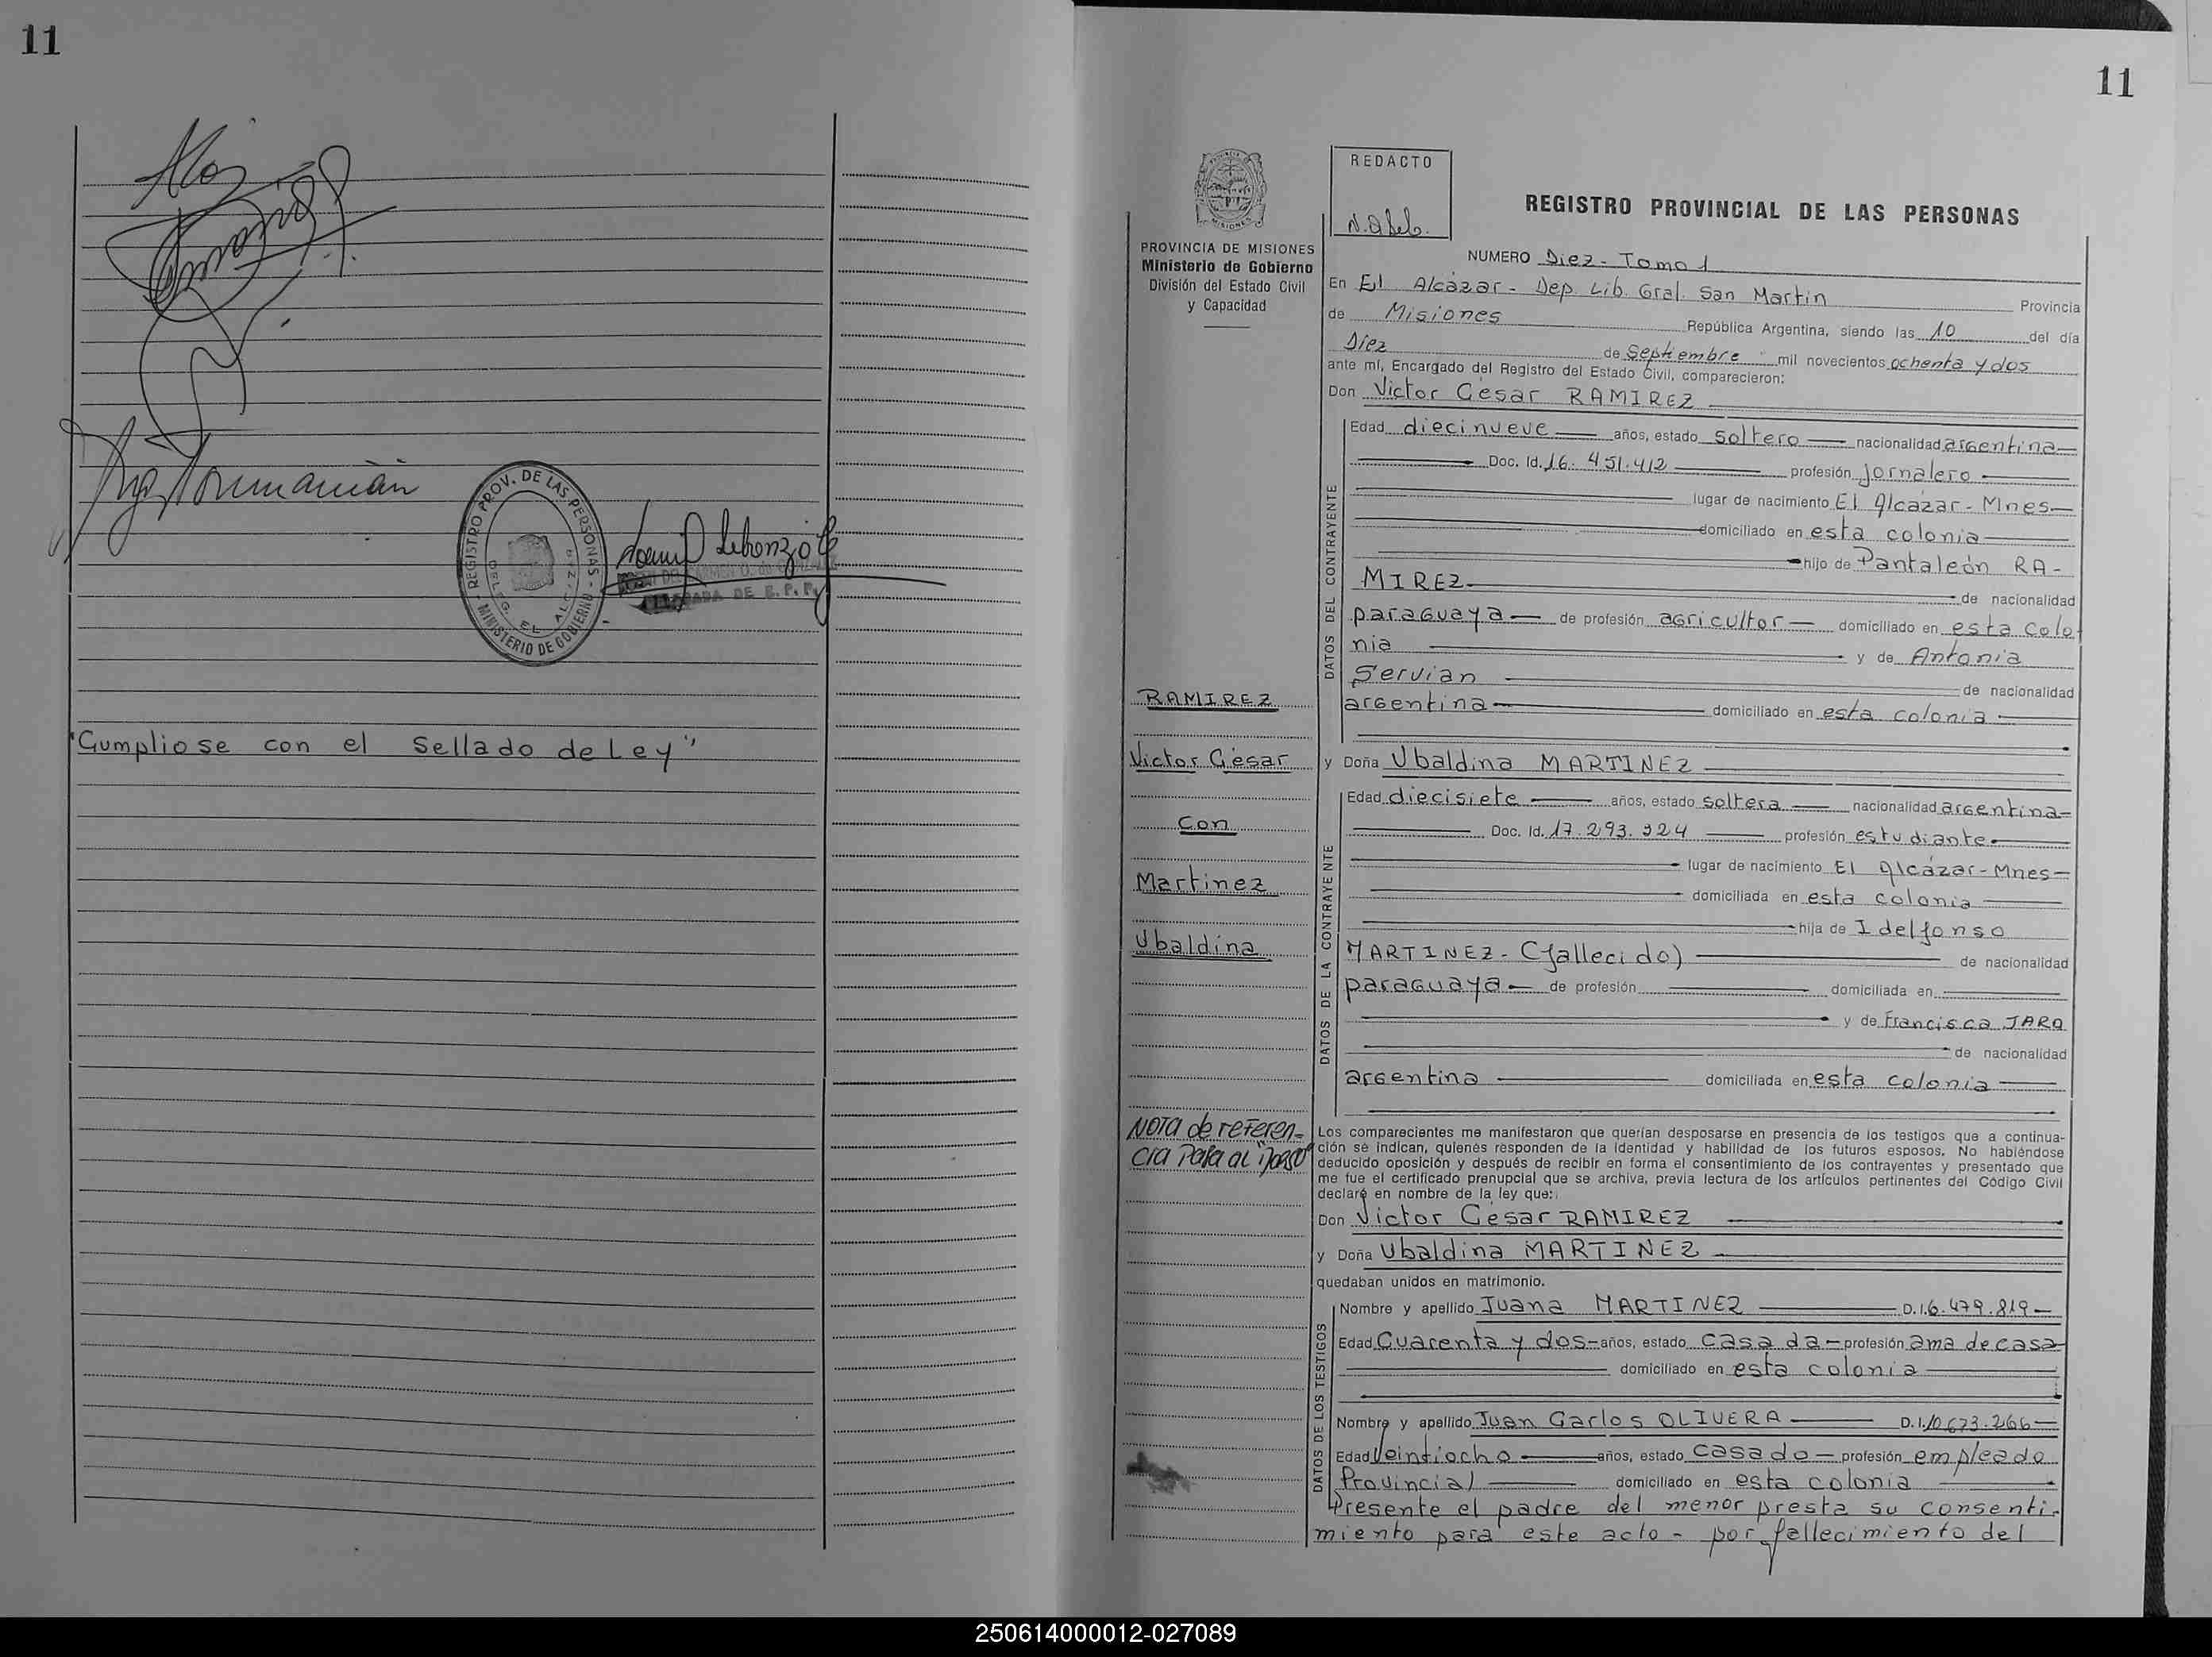 11
REGISTRO PROV. DE LAS PERSONAS - MINISTERIO DE GOBIERNO -
EL ALCAZAR
DE E. P. P.
"Cumpliose con el Sellado de Ley"
11
REDACTO
REGISTRO PROVINCIAL DE LAS PERSONAS
PROVINCIA DE MISIONES
Ministerio de Gobierno
División del Estado Civil
y Capacidad
RAMIREZ
Victor César
Con
Martinez
Ubaldina
NOTA de referen-
cia Para al Dorso
NUMERO Diez - Tomo 1
En El Alcázar - Dep. Lib. Gral. San Martin Provincia
de Misiones República Argentina, siendo las 10 del día
Diez de Septiembre mil novecientos ochenta y dos
ante mí, Encargado del Registro del Estado Civil, comparecieron:
Don Victor César RAMIREZ
DATOS DEL CONTRAYENTE
Edad diecinueve años, estado soltero nacionalidad argentina
Doc. Id. 16.451.412 profesión jornalero
lugar de nacimiento El Alcázar - Mnes
domiciliado en esta colonia
hijo de Pantaleón RA-
MIREZ de nacionalidad
paraguaya de profesión agricultor domiciliado en esta colo
nia y de Antonia
Servian de nacionalidad
argentina domiciliado en esta colonia
y Doña Ubaldina MARTINEZ
DATOS DE LA CONTRAYENTE
Edad diecisiete años, estado soltera nacionalidad argentina
Doc. Id. 17.293.324 profesión estudiante
lugar de nacimiento El Alcázar - Mnes
domiciliada en esta colonia
hija de Idelfonso
MARTINEZ - (fallecido) de nacionalidad
paraguaya de profesión domiciliada en
y de Francisca JARA
de nacionalidad
argentina domiciliada en esta colonia
Los comparecientes me manifestaron que querían desposarse en presencia de los testigos que a continua-
ción se indican, quienes responden de la identidad y habilidad de los futuros esposos. No habiéndose
deducido oposición y después de recibir en forma el consentimiento de los contrayentes y presentado que
me fue el certificado prenupcial que se archiva, previa lectura de los artículos pertinentes del Código Civil
declaré en nombre de la ley que:
Don Victor César RAMIREZ
y Doña Ubaldina MARTINEZ
quedaban unidos en matrimonio.
DATOS DE LOS TESTIGOS
Nombre y apellido Juana MARTINEZ D.I. 6.479.819
Edad Cuarenta y dos años, estado Casada profesión ama de casa
domiciliado en esta colonia
Nombre y apellido Juan Carlos OLIVERA D.I. 10.673.266
Edad Veintiocho años, estado Casado profesión empleado
Provincial domiciliado en esta colonia
Presente el padre del menor presta su consenti-
miento para este acto - por fallecimiento del
250614000012-027089